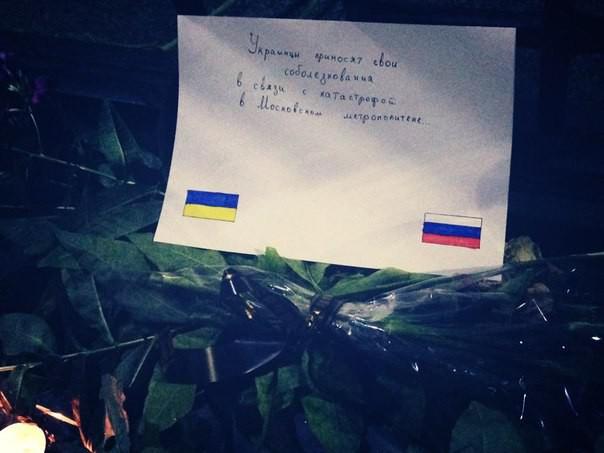 Украинцы приносят свои
соболезнования
в связи с катастрофой
в Московском метрополитене...